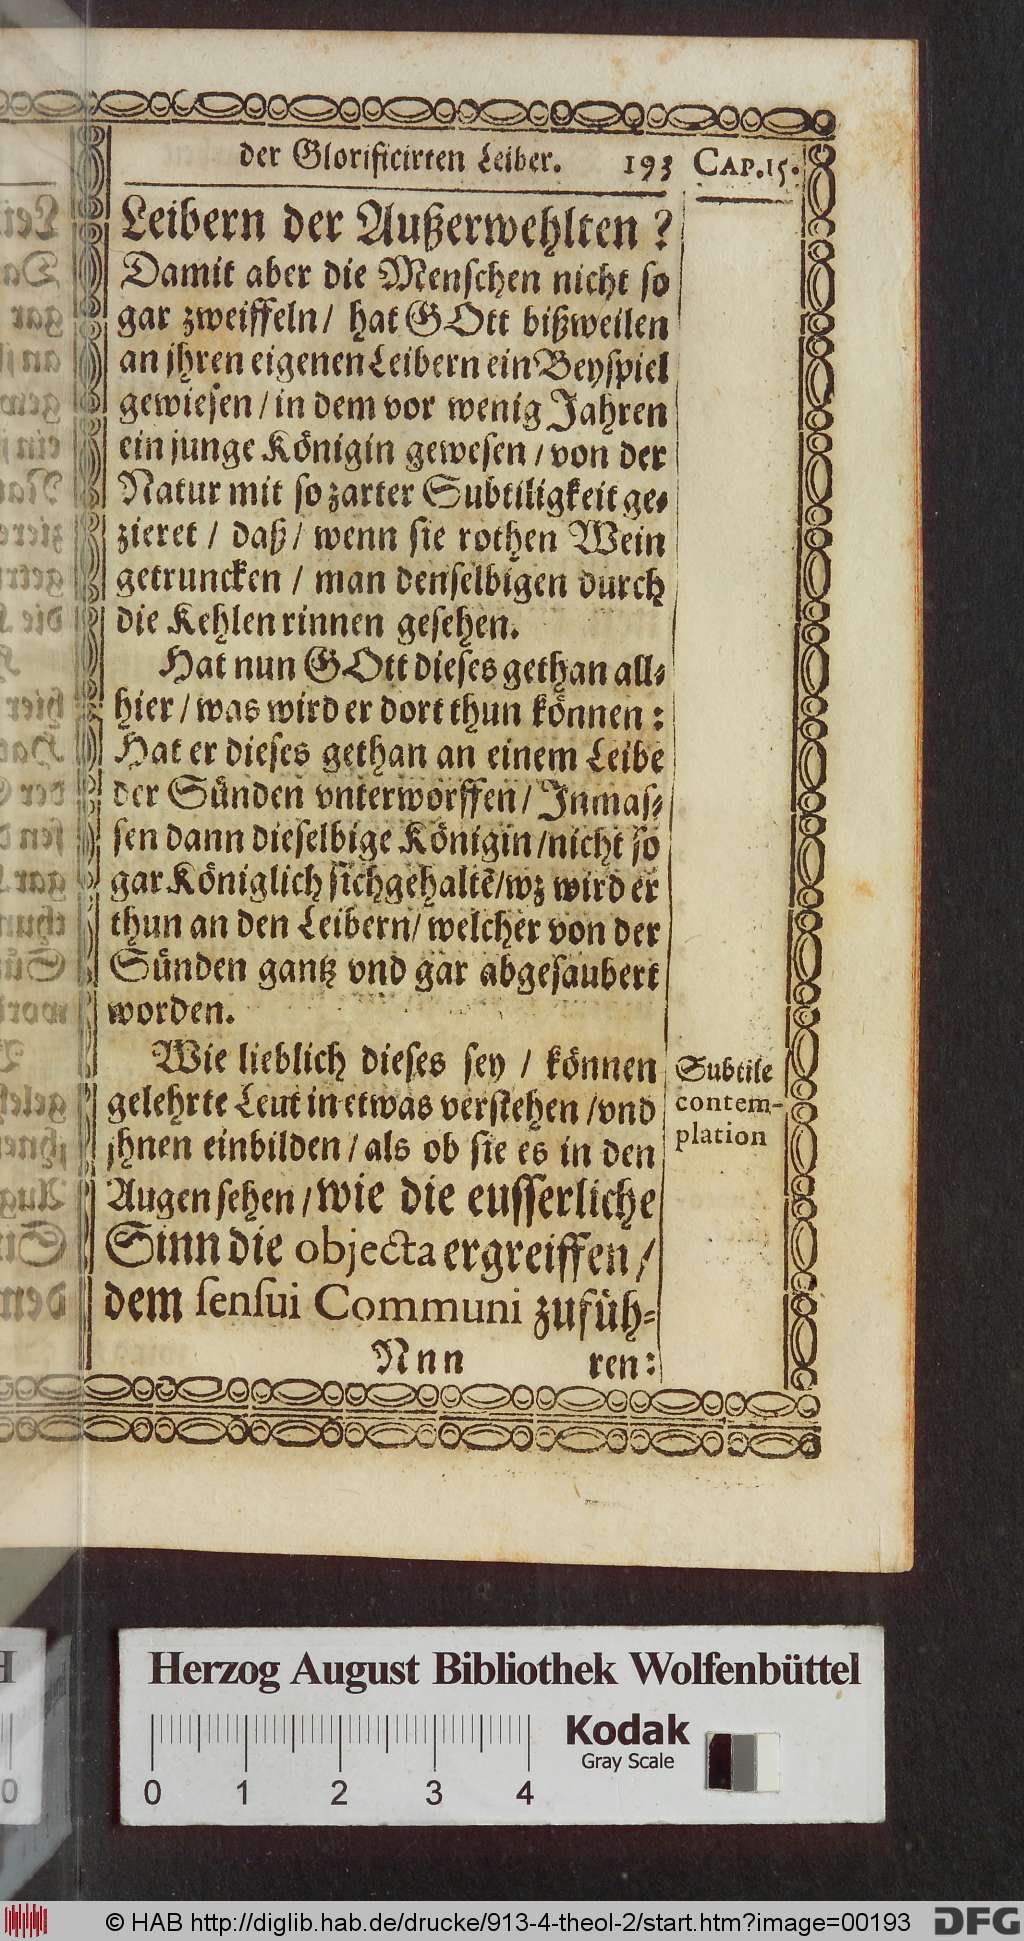 der Glorificirten Leiber. 193 CAP.15.
Leibern der Außerwehlten?
Damit aber die Menschen nicht so
gar zweiffeln/ hat GOtt bißweilen
an jhren eigenen Leibern ein Beyspiel
gewiesen/ in dem vor wenig Jahren
ein junge Königin gewesen/ von der
Natur mit so zarter Subtiligkeit ge-
zieret/ daß/ wenn sie rothen Wein
getruncken/ man denselbigen durch
die Kehlen rinnen gesehen.
Hat nun GOtt dieses gethan all-
hier/ was wird er dort thun können:
Hat er dieses gethan an einem Leibe
der Sünden vnterworffen/ Jnmas-
sen dann dieselbige Königin/nicht so
gar Königlich sich gehaltē/wz wird er
thun an den Leibern/ welcher von der
Sünden gantz vnd gar abgesaubert
worden.
Wie lieblich dieses sey / können
gelehrte Leut in etwas verstehen/vnd
jhnen einbilden/ als ob sie es in den
Augen sehen/ wie die eusserliche
Sinn die objecta ergreiffen/
dem sensui Communi zufüh-
Nnn ren:
Subtile
contem-
plation
Herzog August Bibliothek Wolfenbüttel
Kodak
Gray Scale
0 1 2 3 4
© HAB http://diglib.hab.de/drucke/913-4-theol-2/start.htm?image=00193
DFG